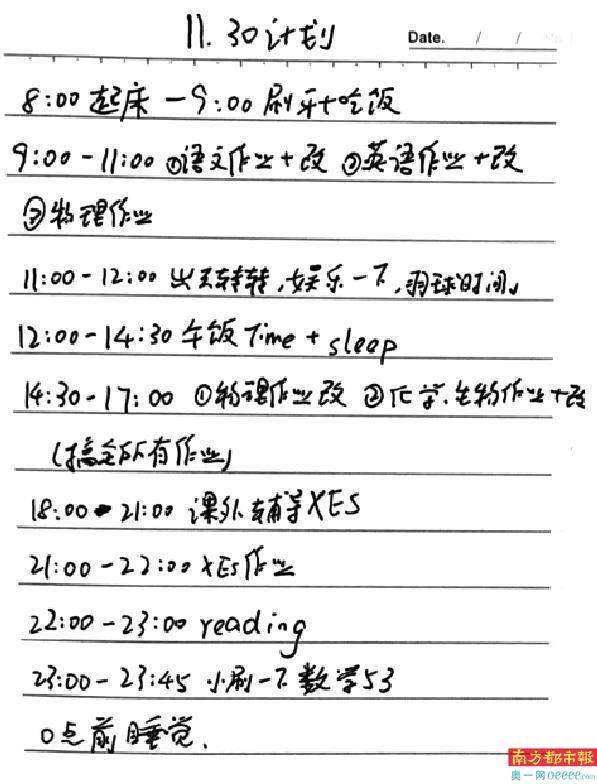 11.30计划
Date. / /
8:00起床-9:00刷牙+吃饭
9:00-11:00 ①语文作业+改 ②英语作业+改
③物理作业
11:00-12:00 出去转转,娱乐一下,羽球时间。
12:00-14:30 午饭Time + sleep
14:30-17:00 ①物理作业改 ②化学.生物作业+改
(搞定所有作业)
18:00-21:00 课外辅导XES
21:00-22:00 XEs作业
22:00-23:00 reading
23:00-23:45 小刷一下数学53
0点前睡觉.
南方都市报
奥一网oeeee.com